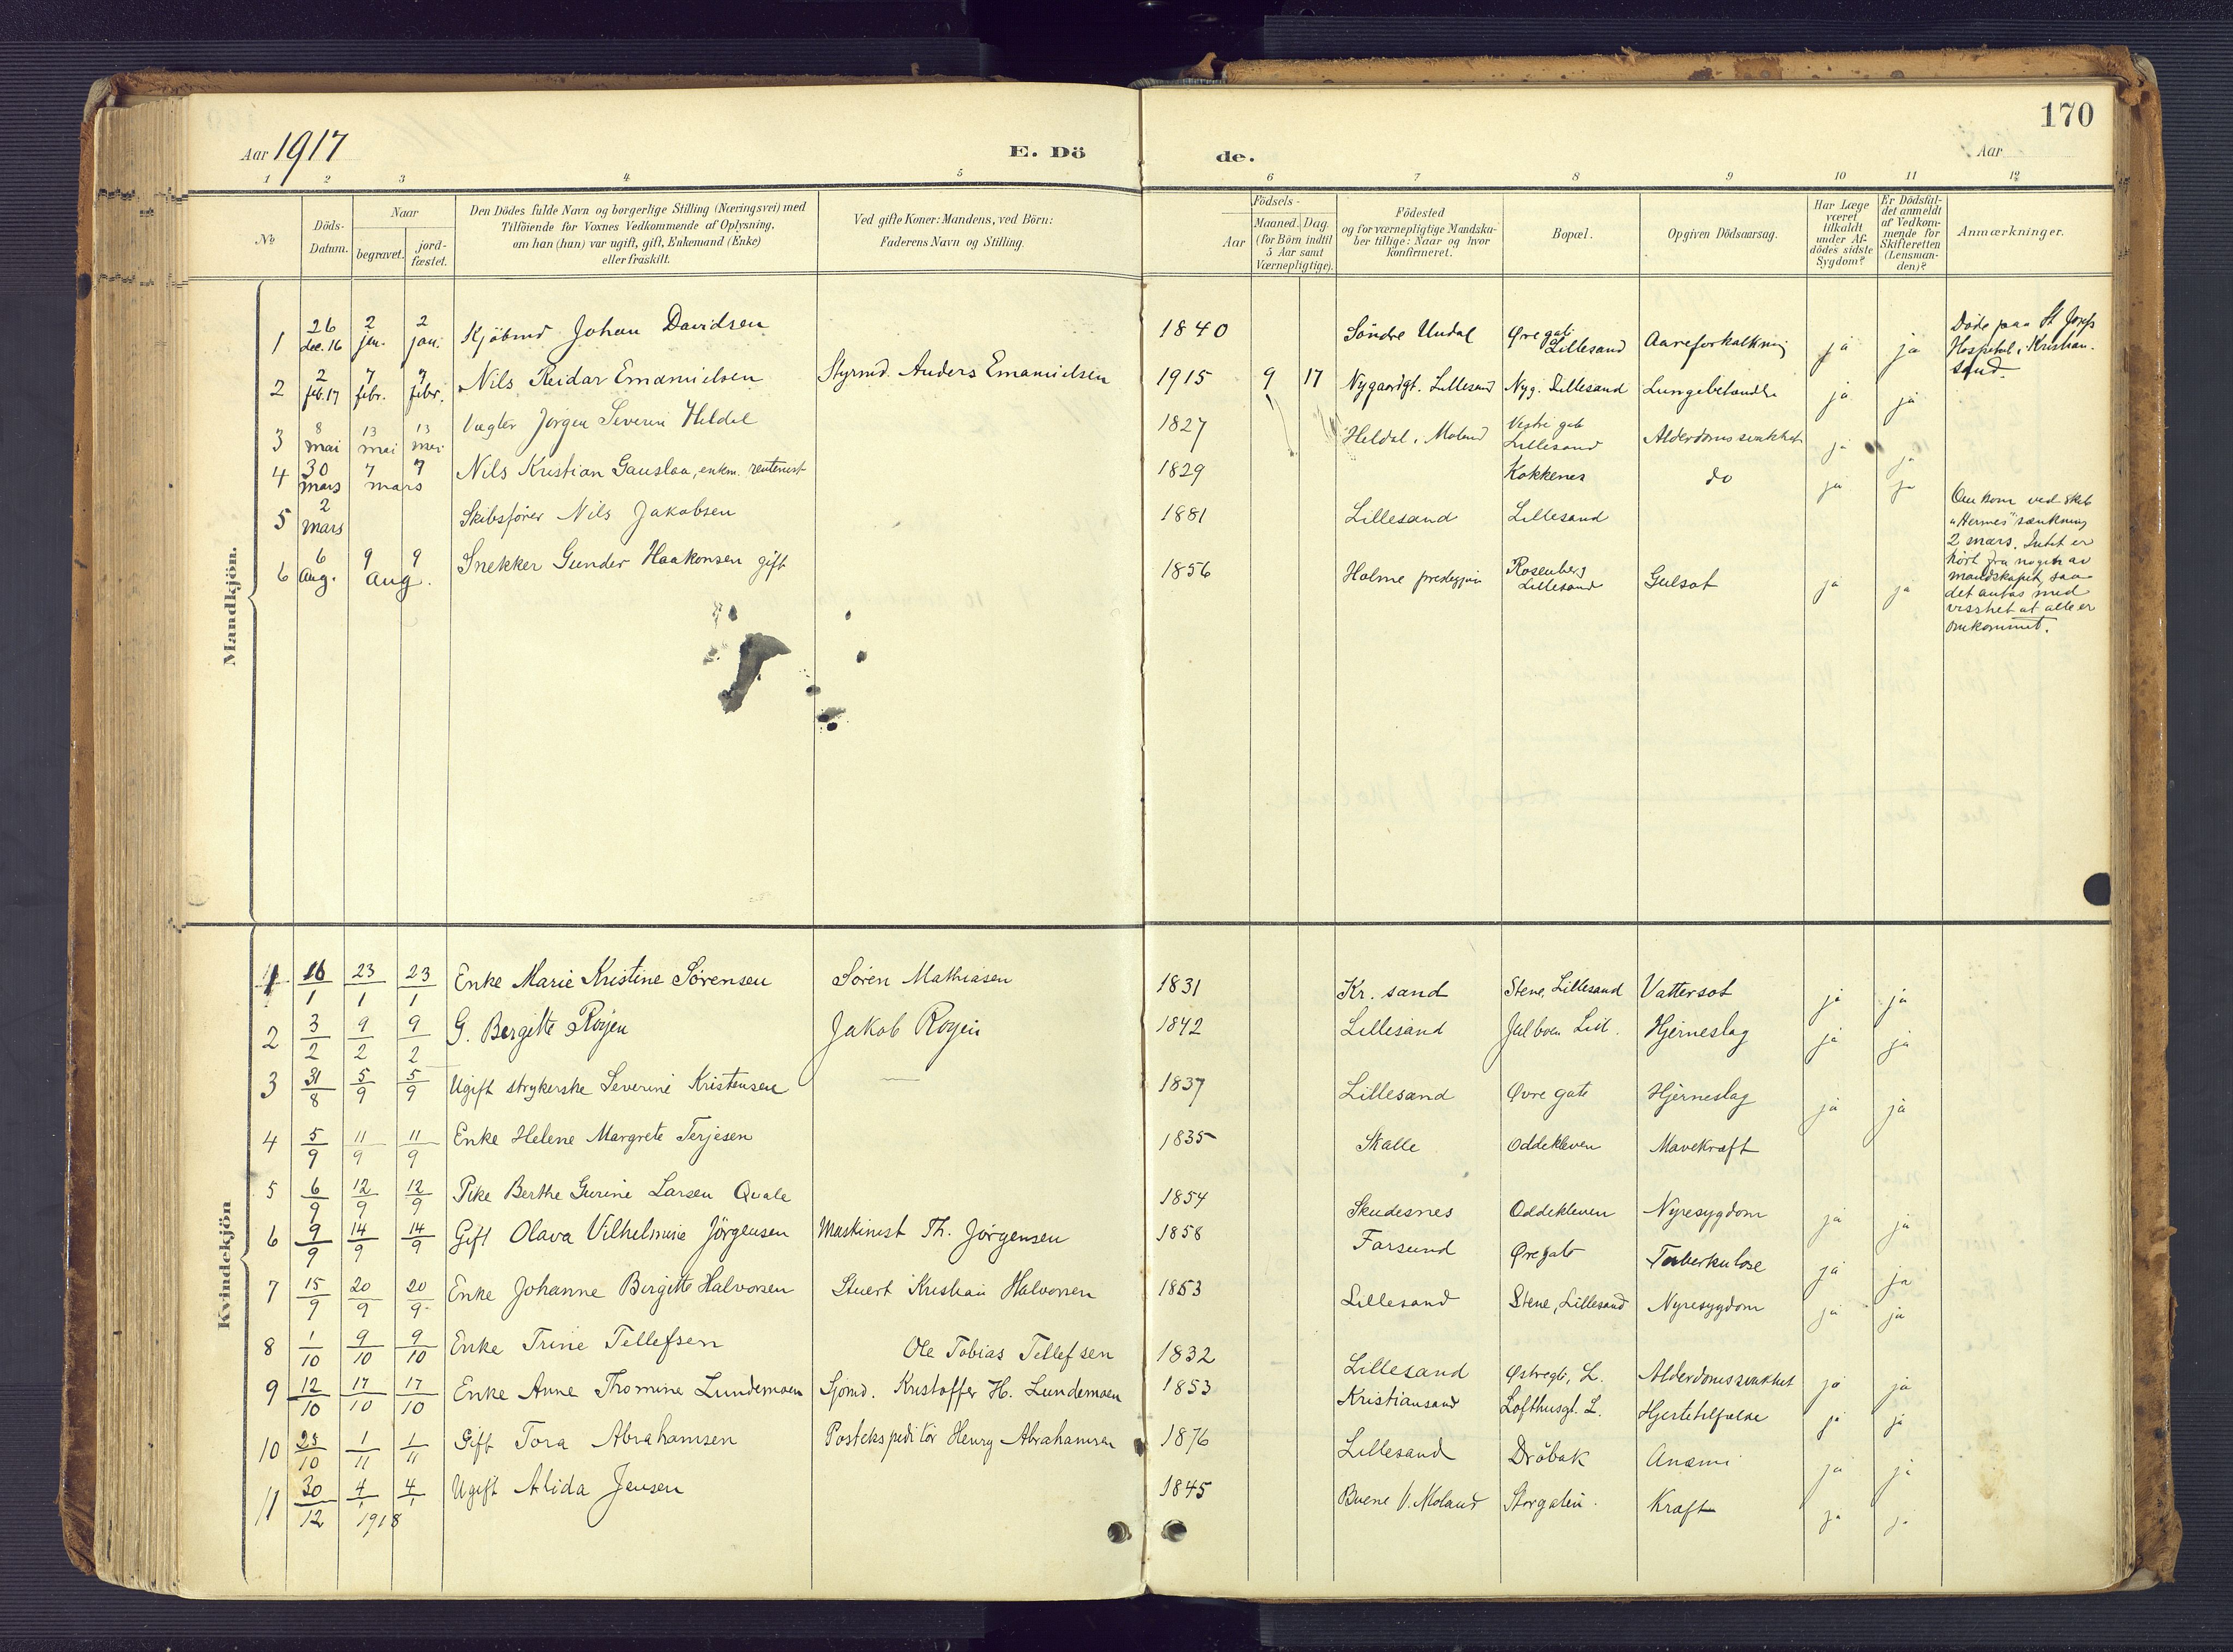 170
Aar 1917
E. Dö de.
Aar
1 2 3 4 5 6 7 8 9 10 11 12
№
Döds-
Datum.
Naar
begravet.
jord-
fæstet.
Den Dödes fulde Navn og borgerlige Stilling (Næringsvei) med
Tilföiende for Voxnes Vedkommende af Oplysning,
om han (hun) var ugift, gift, Enkemand (Enke)
eller fraskilt.
Ved gifte Koner: Mandens, ved Börn:
Faderens Navn og Stilling.
Födsels-
Aar
Maaned. Dag.
(for Börn indtil
5 Aar samt
Værnepligtige).
Födested
og for værnepligtige Mandska-
ber tillige: Naar og hvor
konfirmeret.
Bopæl.
Opgiven Dödsaarsag.
Har Læge
været
tilkaldt
under Af-
dödes sidste
Sygdom?
Er Dödsfal-
det anmeldt
af Vedkom-
mende for
Skifteretten
(Lensman-
den)?
Anmærkninger.
Mandkjön.
1 26 dec. 16 2 jan. 2 jan. Kjöbmd Johan Davidsen 1840 Söndre Undal Øvregate Lillesand Aareforkalkning ja ja Döde paa St Josefs
Hospital i Kristian-
sand.
2 2 feb. 17 7 febr. 7 febr. Nils Reidar Emanuelsen Styrmd. Anders Emanuelsen 1915 9 17 Nygaardgt. Lillesand Nyg. Lillesand Lungebetændelse ja ja
3 8 mai 13 mai 13 mai Vægter Jörgen Severin Heldal 1827 Heldal i Moland Vestregate Lillesand Alderdomssvakhet ja ja
4 30 mars 7 7 mars Nils Kristian Gauslaa, enkm. rentenist 1829 Kokkenes do ja ja
5 2 mars Skibsförer Nils Jakobsen 1881 Lillesand Lillesand Omkom ved skib
"Hermes" sænkning
2 mars. Intet er
hört fra nogen av
mandskapet, saa
det antas med
visshet at alle er
omkommet.
6 6 Aug. 9 9 Aug. Snekker Gunder Haakonsen gift 1856 Holme Rosenberg Lillesand Gulsot ja ja
Kvindekjön
1 16/1 23/1 23/1 Enke Marie Kristine Sörensen Sören Mathiasen 1831 Kr. sand Stene, Lillesand Vattersot ja ja
2 3/2 9/2 9/2 G. Bergitte Röyen Jakob Röyen 1842 Lillesand Lill. Hjerneslag ja ja
3 31/8 5/9 5/9 Ugift strykerske Severine Kristensen — 1837 Lillesand Øvre gate Hjerneslag ja ja
4 5/9 11/9 11/9 Enke Helene Margrete Terjesen 1835 Skalle Oddekleven Mavekræft
5 6/9 12/9 12/9 Pike Berthe Gurine Larsen Qvale 1854 Skudesnes Oddekleven Nyresygdom ja ja
6 9/9 14/9 14/9 Gift Olava Vilhelmine Jörgensen Maskinist Th. Jörgensen 1858 Farsund Øvregate Tuberkulose ja ja
7 15/9 20/9 20/9 Enke Johanne Birgitte Halvorsen Stuert Kristian Halvorsen 1853 Lillesand Stene, Lillesand Nyresygdom ja ja
8 1/10 9/10 9/10 Enke Trine Tellefsen Ole Tobias Tellefsen 1832 Lillesand Østregt, L. Alderdomssvakhet ja ja
9 12/10 17/10 17/10 Enke Anne Thomine Lundemoen Sjömd. Kristoffer H. Lundemoen 1853 Kristiansand Lofthusgt. L. Hjertetilfælde ja ja
10 25/10 1/11 1/11 Gift Tora Abrahamsen Postekspeditör Henry Abrahamsen 1876 Lillesand Dröbak Anæmi ja ja
11 30/12 4/1 4/1 1918 Ugift Alida Jensen 1845 Buene V. Moland Storgaten. Kræft ja ja